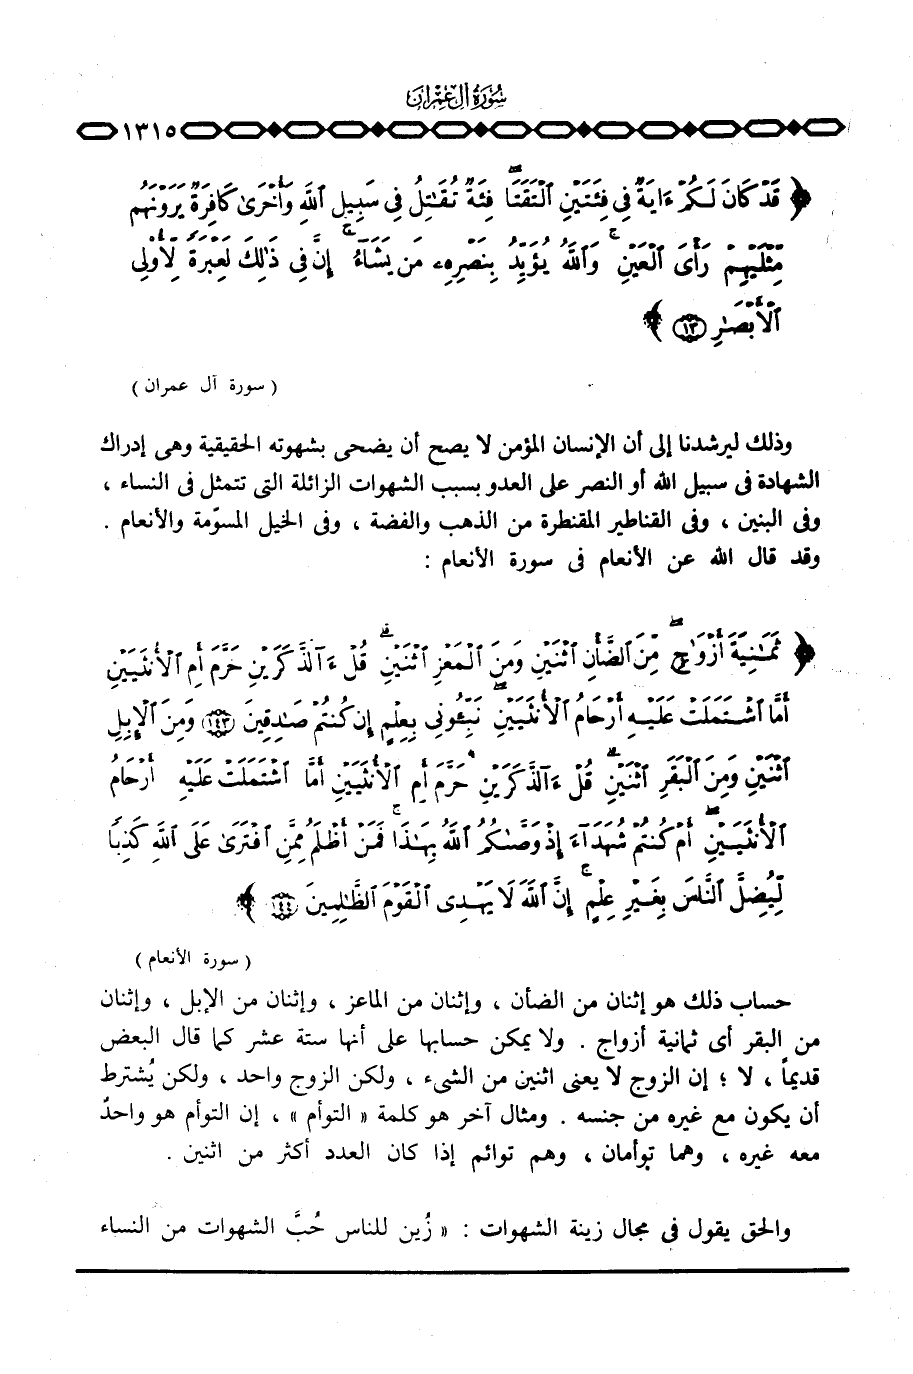 سُورَةُ آلِ عِمْرَان
١٣١٥
﴿ قَدْ كَانَ لَكُمْ ءَايَةٌ فِي فِئَتَيْنِ ٱلْتَقَتَاۖ فِئَةٌ تُقَٰتِلُ فِي سَبِيلِ ٱللَّهِ وَأُخْرَىٰ كَافِرَةٌ يَرَوْنَهُم
مِّثْلَيْهِمْ رَأْىَ ٱلْعَيْنِۚ وَٱللَّهُ يُؤَيِّدُ بِنَصْرِهِۦ مَن يَشَآءُۚ إِنَّ فِي ذَٰلِكَ لَعِبْرَةً لِّأُوْلِي
ٱلْأَبْصَٰرِ ١٣ ﴾
( سورة آل عمران )
وذلك ليرشدنا إلى أن الإنسان المؤمن لا يصح أن يضحى بشهوته الحقيقية وهى إدراك
الشهادة فى سبيل الله أو النصر على العدو بسبب الشهوات الزائلة التى تتمثل فى النساء ،
وفى البنين ، وفى القناطير المقنطرة من الذهب والفضة ، وفى الخيل المسوّمة والأنعام .
وقد قال الله عن الأنعام فى سورة الأنعام :
﴿ ثَمَٰنِيَةَ أَزْوَٰجٍۖ مِّنَ ٱلضَّأْنِ ٱثْنَيْنِ وَمِنَ ٱلْمَعْزِ ٱثْنَيْنِۗ قُلْ ءَآلذَّكَرَيْنِ حَرَّمَ أَمِ ٱلْأُنثَيَيْنِ
أَمَّا ٱشْتَمَلَتْ عَلَيْهِ أَرْحَامُ ٱلْأُنثَيَيْنِۖ نَبِّـُٔونِي بِعِلْمٍ إِن كُنتُمْ صَٰدِقِينَ ١٤٣ وَمِنَ ٱلْإِبِلِ
ٱثْنَيْنِ وَمِنَ ٱلْبَقَرِ ٱثْنَيْنِۗ قُلْ ءَآلذَّكَرَيْنِ حَرَّمَ أَمِ ٱلْأُنثَيَيْنِ أَمَّا ٱشْتَمَلَتْ عَلَيْهِ أَرْحَامُ
ٱلْأُنثَيَيْنِۖ أَمْ كُنتُمْ شُهَدَآءَ إِذْ وَصَّىٰكُمُ ٱللَّهُ بِهَٰذَاۚ فَمَنْ أَظْلَمُ مِمَّنِ ٱفْتَرَىٰ عَلَى ٱللَّهِ كَذِبًا
لِّيُضِلَّ ٱلنَّاسَ بِغَيْرِ عِلْمٍۚ إِنَّ ٱللَّهَ لَا يَهْدِي ٱلْقَوْمَ ٱلظَّٰلِمِينَ ١٤٤ ﴾
( سورة الأنعام )
حساب ذلك هو إثنان من الضأن ، وإثنان من الماعز ، وإثنان من الإبل ، وإثنان
من البقر أى ثمانية أزواج . ولا يمكن حسابها على أنها ستة عشر كما قال البعض
قديماً ، لا ؛ إن الزوج لا يعنى اثنين من الشىء ، ولكن الزوج واحد ، ولكن يُشترط
أن يكون مع غيره من جنسه . ومثال آخر هو كلمة « التوأم » ، إن التوأم هو واحدٌ
معه غيره ، وهما توأمان ، وهم توائم إذا كان العدد أكثر من اثنين .
والحق يقول فى مجال زينة الشهوات : « زُين للناس حُبَّ الشهوات من النساء